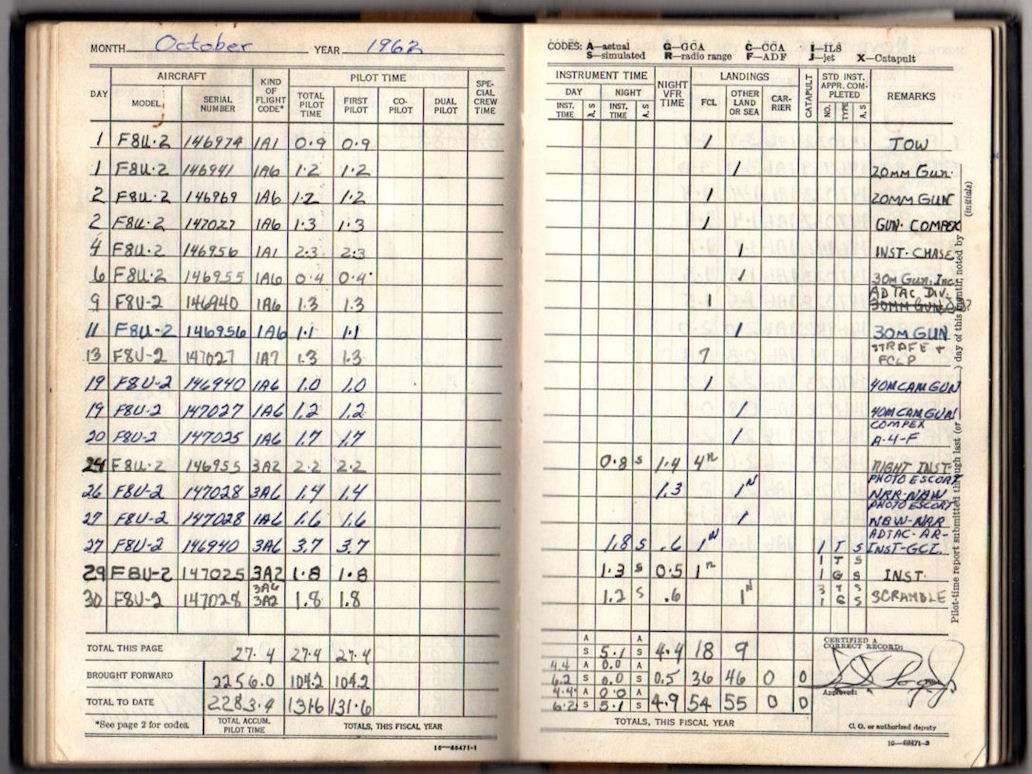 MONTH October YEAR 1962
CODES: A—actual G—GCA C—CCA I—ILS
S—simulated R—radio range F—ADF J—jet X—Catapult
DAY AIRCRAFT KIND OF FLIGHT CODE* PILOT TIME SPECIAL CREW TIME
MODEL SERIAL NUMBER TOTAL PILOT TIME FIRST PILOT CO-PILOT DUAL PILOT
INSTRUMENT TIME NIGHT VFR TIME LANDINGS CATAPULT STD INST. APPR. COMPLETED REMARKS
DAY NIGHT FCL OTHER LAND OR SEA CARRIER NO. TYPE A, S
INST. TIME A, S INST. TIME A, S
1 F8U-2 146974 1A1 0.9 0.9 1 TOW
1 F8U-2 146941 1A6 1.2 1.2 1 20MM GUN.
2 F8U-2 146969 1A6 1.2 1.2 1 20MM GUN
2 F8U-2 147027 1A6 1.3 1.3 1 GUN. COMPEX
4 F8U-2 146956 1A1 2.3 2.3 1 INST. CHASE
6 F8U-2 146955 1A6 0.4 0.4 1 30M GUN. Inc
9 F8U-2 146940 1A6 1.3 1.3 1 ADTAC DIV.
30MM GUN
11 F8U-2 146956 1A6 1.1 1.1 1 30M GUN
13 F8U-2 147027 1A7 1.3 1.3 7 STRAFE + FCLP
19 F8U-2 146940 1A6 1.0 1.0 1 40M CAM GUN
19 F8U-2 147027 1A6 1.2 1.2 1 40M CAM GUN
20 F8U-2 147025 1A6 1.7 1.7 1 COMPEX A-4-F
24 F8U-2 146955 3A2 2.2 2.2 0.8 S 1.4 4N NIGHT INST.
26 F8U-2 147028 3A6 1.4 1.4 1.3 1N PHOTO ESCORT NRR-NBW
27 F8U-2 147028 1A6 1.6 1.6 1 PHOTO ESCORT NBW-NAR
27 F8U-2 146940 3A6 3.7 3.7 1.8 S .6 1N 1 T S ADTAC-AR-INST-GCI
29 F8U-2 147025 3A2 1.8 1.8 1.3 S 0.5 1N 1 T S 1 G S INST.
30 F8U-2 147028 3A6 3A2 1.8 1.8 1.2 S .6 1N 3 T S 1 G S SCRAMBLE
TOTAL THIS PAGE 27.4 27.4 27.4 A S 5.1 A S 4.4 18 9
BROUGHT FORWARD 2256.0 104.2 104.2 4.4 A 0.0 A 6.2 S 0.0 S 0.5 36 46 0 0
TOTAL TO DATE 2283.4 131.6 131.6 4.4 A 0.0 A 6.2 S 5.1 S 4.9 54 55 0 0
*See page 2 for codes. TOTAL ACCUM. PILOT TIME TOTALS, THIS FISCAL YEAR
TOTALS, THIS FISCAL YEAR
CERTIFIED A CORRECT RECORD:
Approved:
C. O. or authorized deputy
16—68471-1
16—68471-2
Pilot-time report submitted through last (or ) day of this month, noted by
(initials)